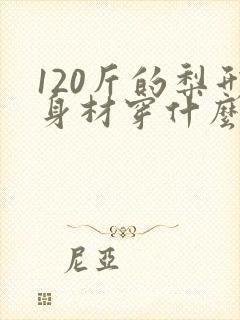 120斤的梨形
身材穿什麼
尼亞